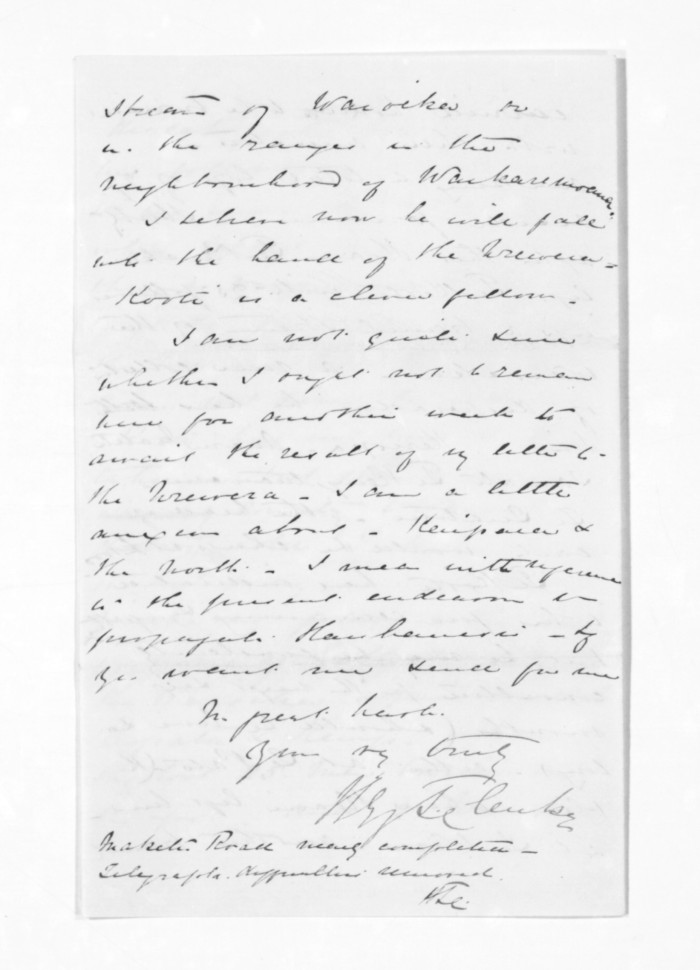 Streams of Waioeka or
in the ranges in the
neighbourhood of Waikaremoana.
I believe now he will fall
into the hands of the Urewera -
Kooti is a clever fellow -
I am not quite sure
whether I ought not to remain
here for another week to
await the result of my letter to
the Urewera - I am a little
anxious about - Kaipara &
the North - I mean with reference
to the present endeavour to
propagate Hauhauism - If
you want me send for me
In great haste.
Yours very truly
Hy T. Clarke
Maketu Road nearly completed -
Telegraph difficulties removed.
HTC.